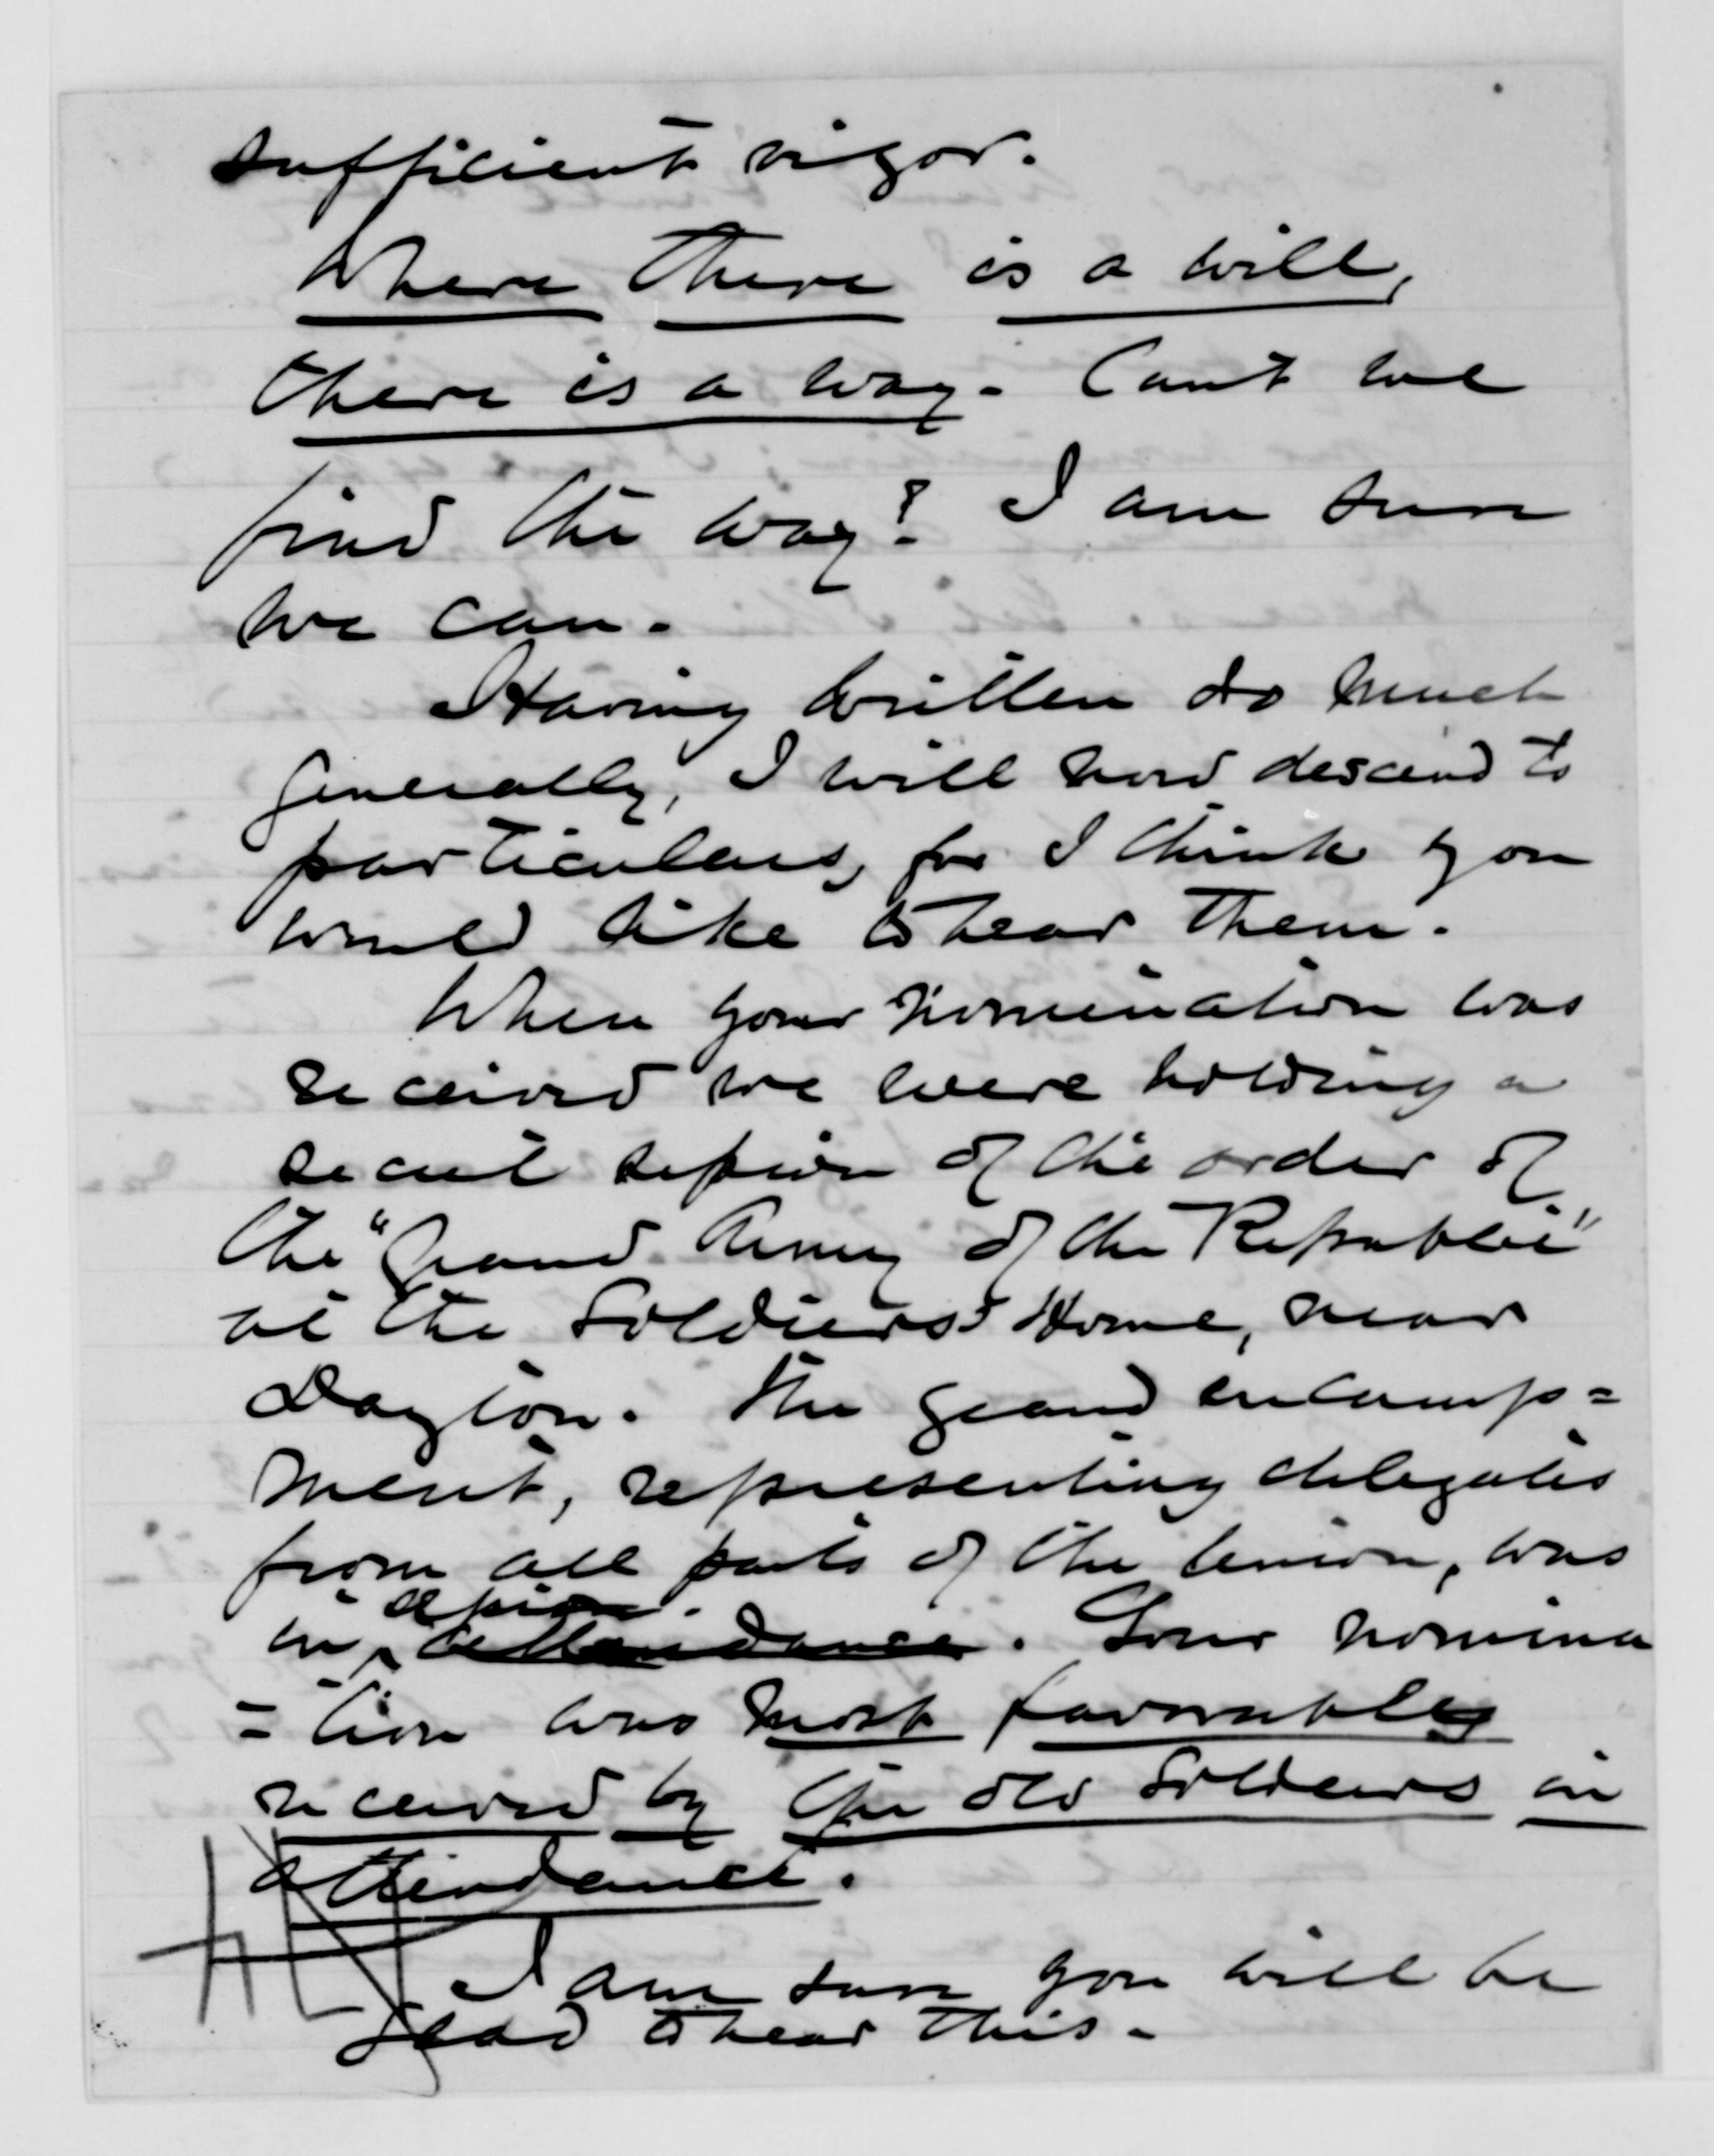 sufficient vigor.
Where there is a will,
there is a way. Can't we
find the way? I am sure
we can.
Having written so much
generally, I will now descend to
particulars, for I think you
would like to hear them.
When your nomination was
received we were holding a
secret session of the order of
the "Grand Army of the Republic"
at the Soldiers' Home, near
Dayton. The grand encamp=
ment, representing delegates
from all parts of the Union, was
in session. attendance. Your nomina
=tion was most favorably
received by the old soldiers in
attendance.
I am sure you will be
glad to hear this.